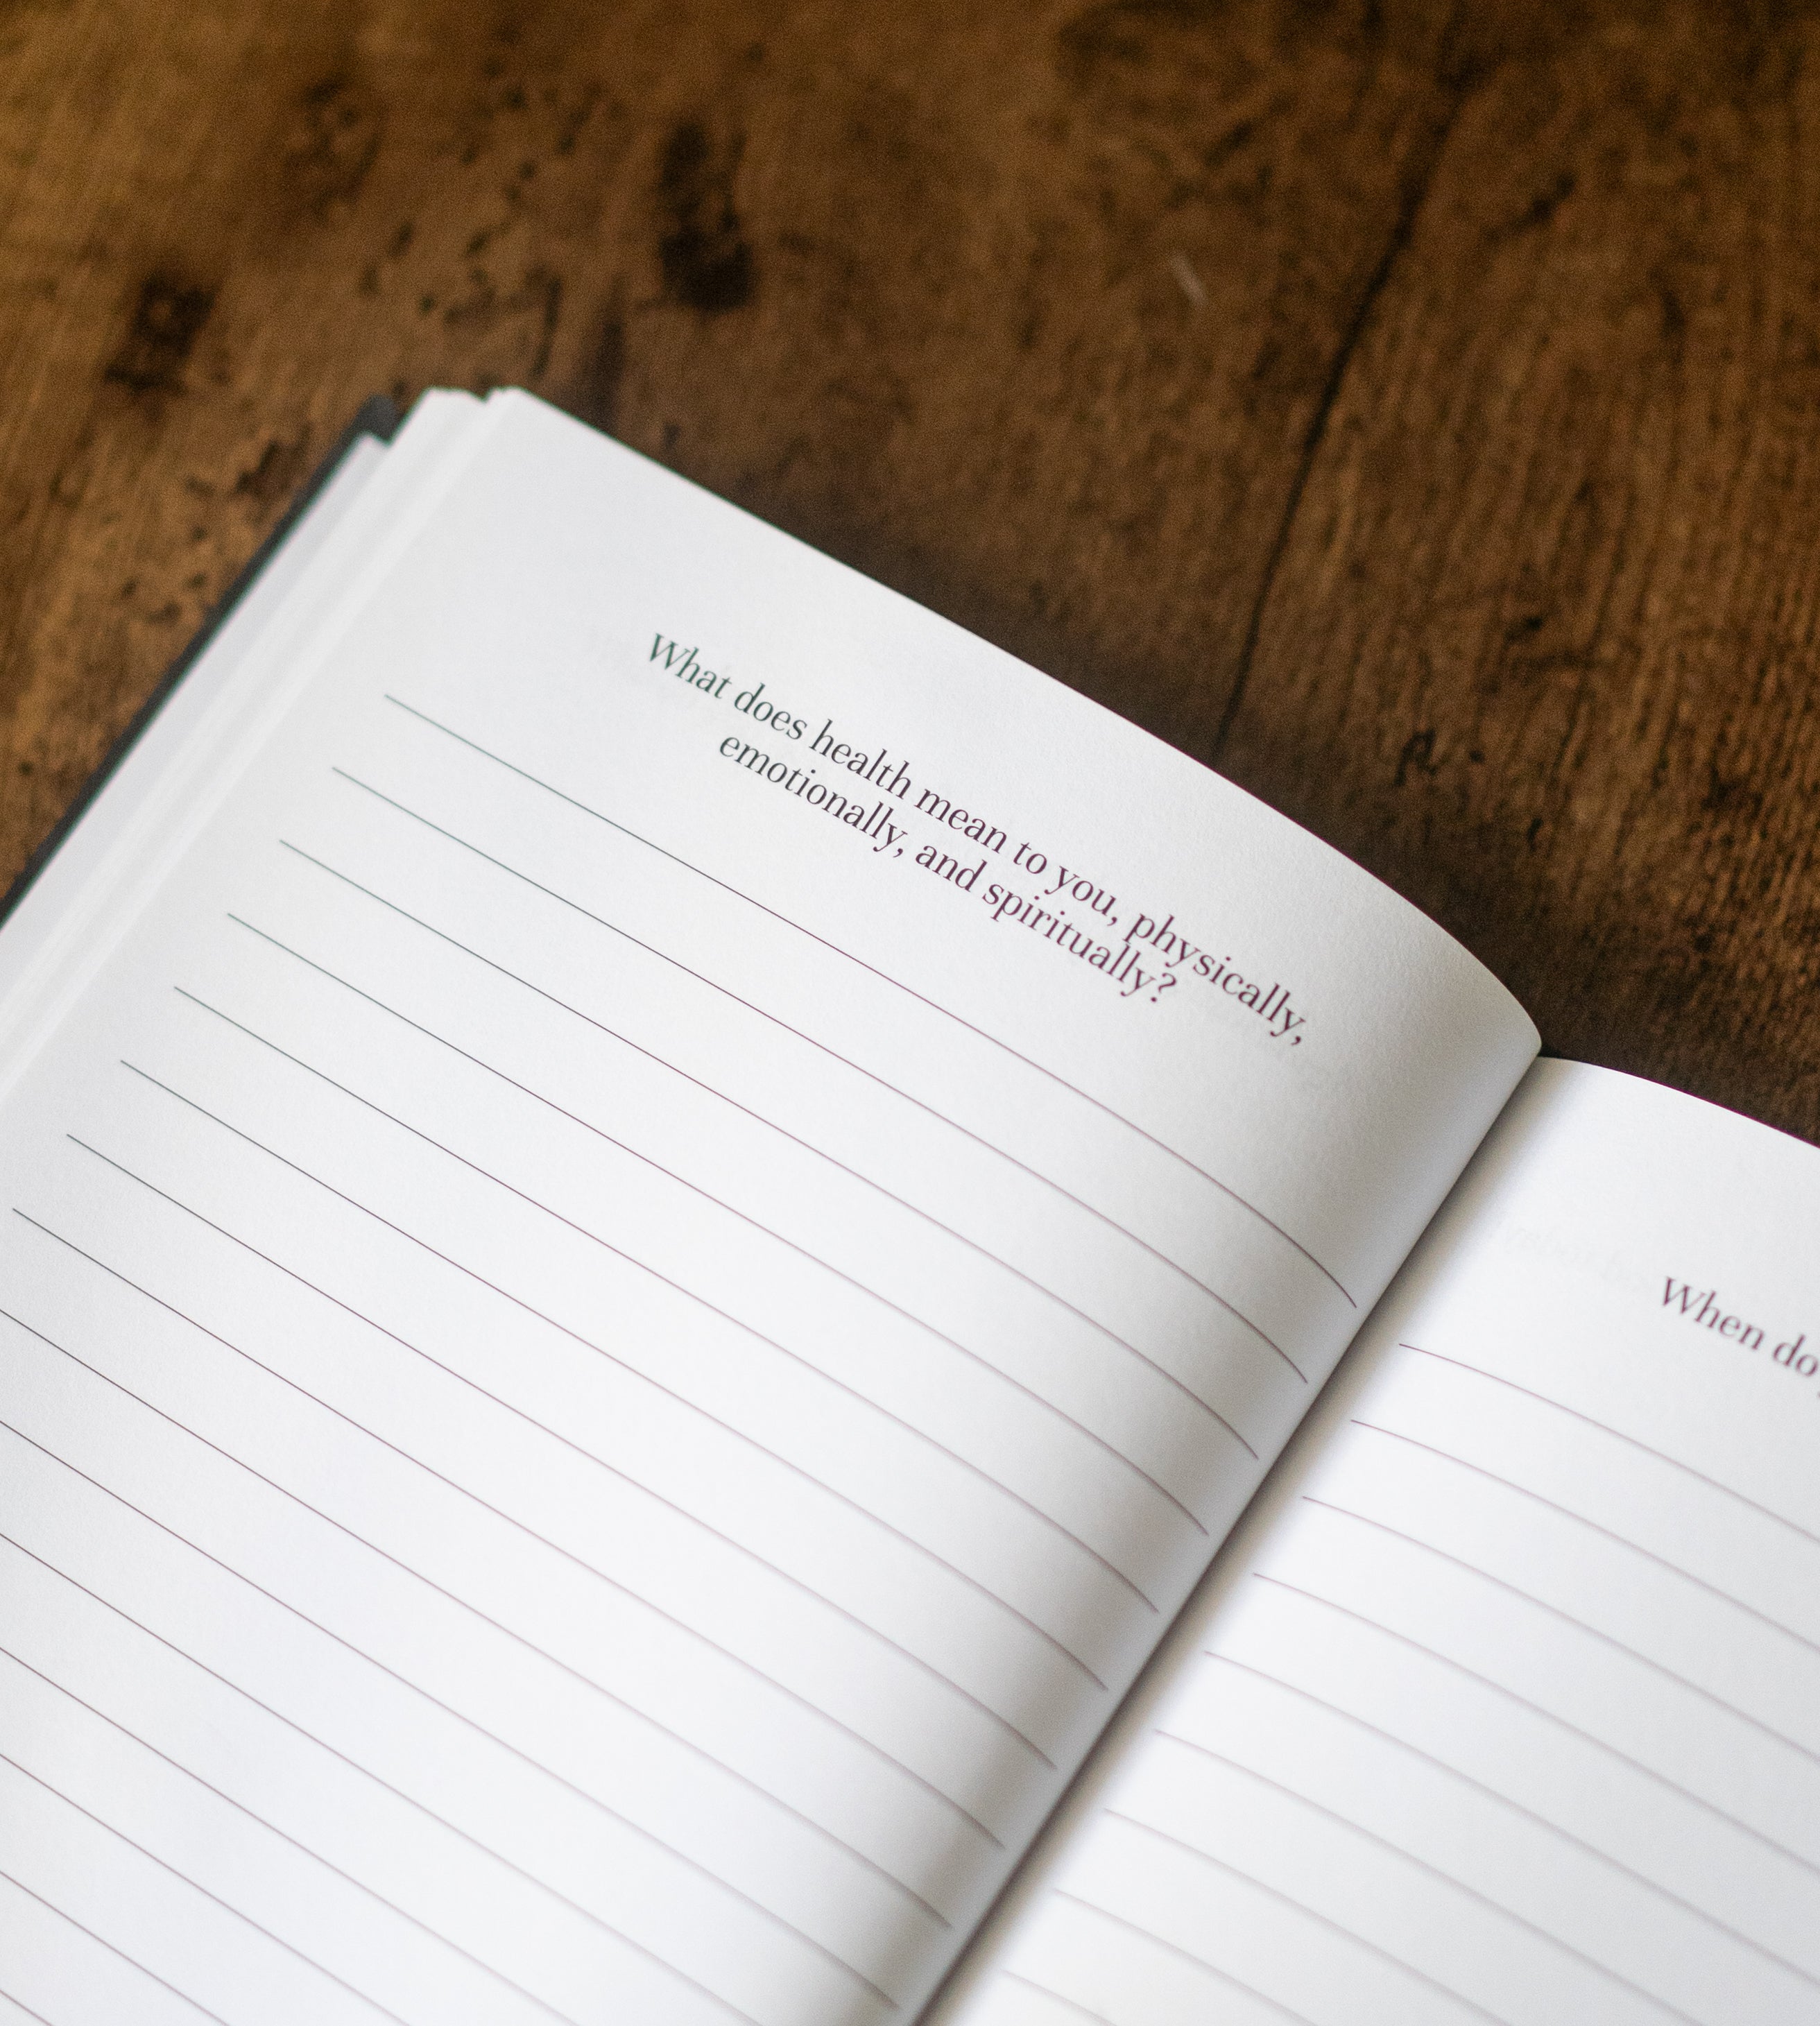 What does health mean to you, physically,
emotionally, and spiritually?
When do